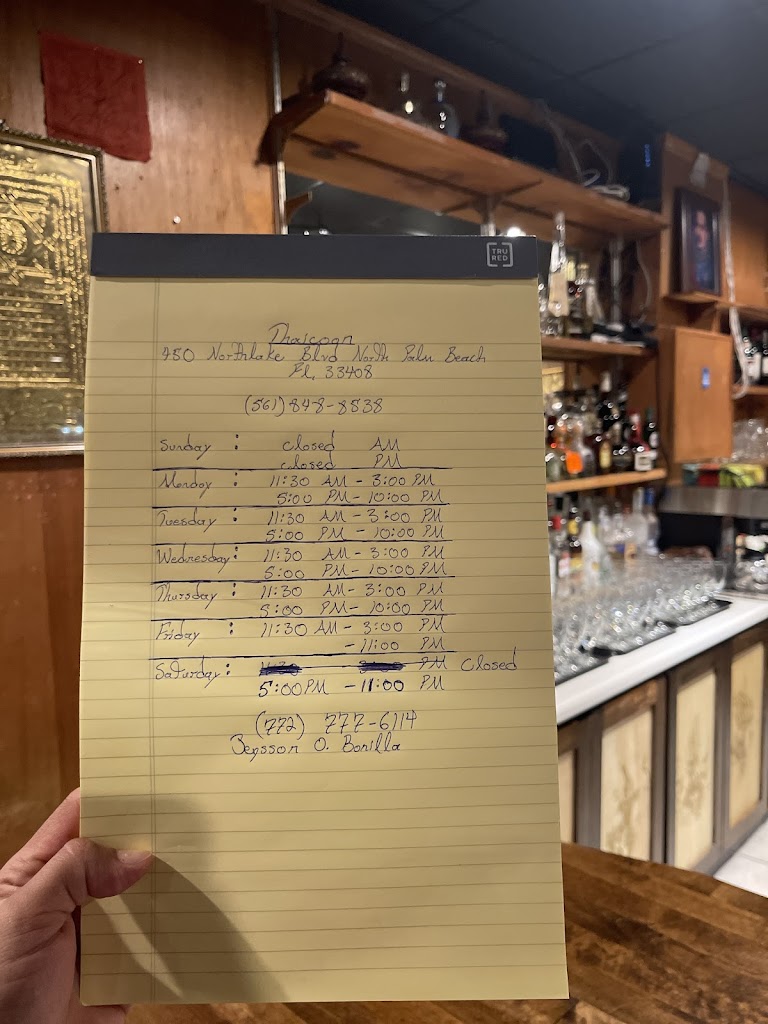 TRU
RED
Thaicoon
450 Northlake Blvd North Palm Beach
Fl, 33408
(561) 848-8538
Sunday : closed AM
closed PM
Monday : 11:30 AM - 3:00 PM
5:00 PM - 10:00 PM
Tuesday : 11:30 AM - 3:00 PM
5:00 PM - 10:00 PM
Wednesday : 11:30 AM - 3:00 PM
5:00 PM - 10:00 PM
Thursday : 11:30 AM - 3:00 PM
5:00 PM - 10:00 PM
Friday : 11:30 AM - 3:00 PM
- 11:00 PM
Saturday : PM closed
5:00 PM - 11:00 PM
(772) 777-6114
Jeysson O. Bonilla